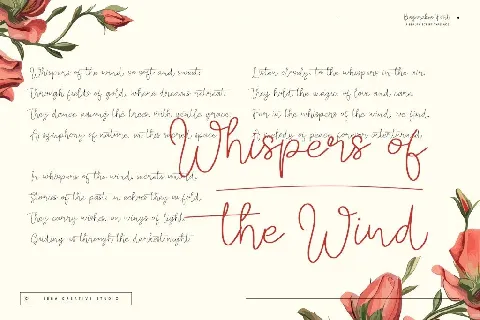 Whispers of the wind, so soft and sweet,
Through fields of gold, where dreams retreat.
They dance among the trees with gentle grace
A symphony of nature, in this sacred space
In whispers of the wind, secrets unfold
Stories of the past, in echoes they're told
They carry wishes on wings of light
Guiding us through the darkest night
Listen closely, to the whispers in the air
They hold the magic of love and care
For in the whispers of the wind, we find,
A melody of peace, for our
Whispers of
the Wind
IDEA CREATIVE STUDIO